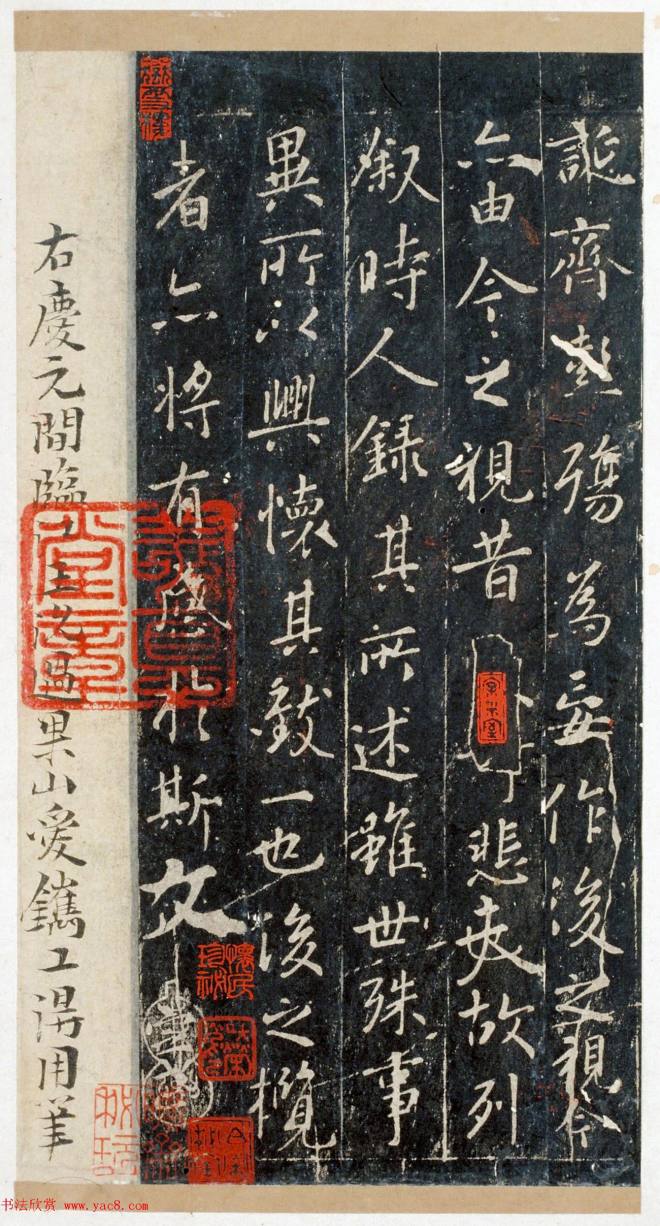 誕齊彭殤為妄作後之視今
亦由今之視昔 悲夫故列
叙時人録其所述雖世殊事
異所以興懷其致一也後之攬
者亦將有感於斯文
右慶元間臨江王沇過果山愛鐫工得用筆
书法欣赏 www.yac8.com